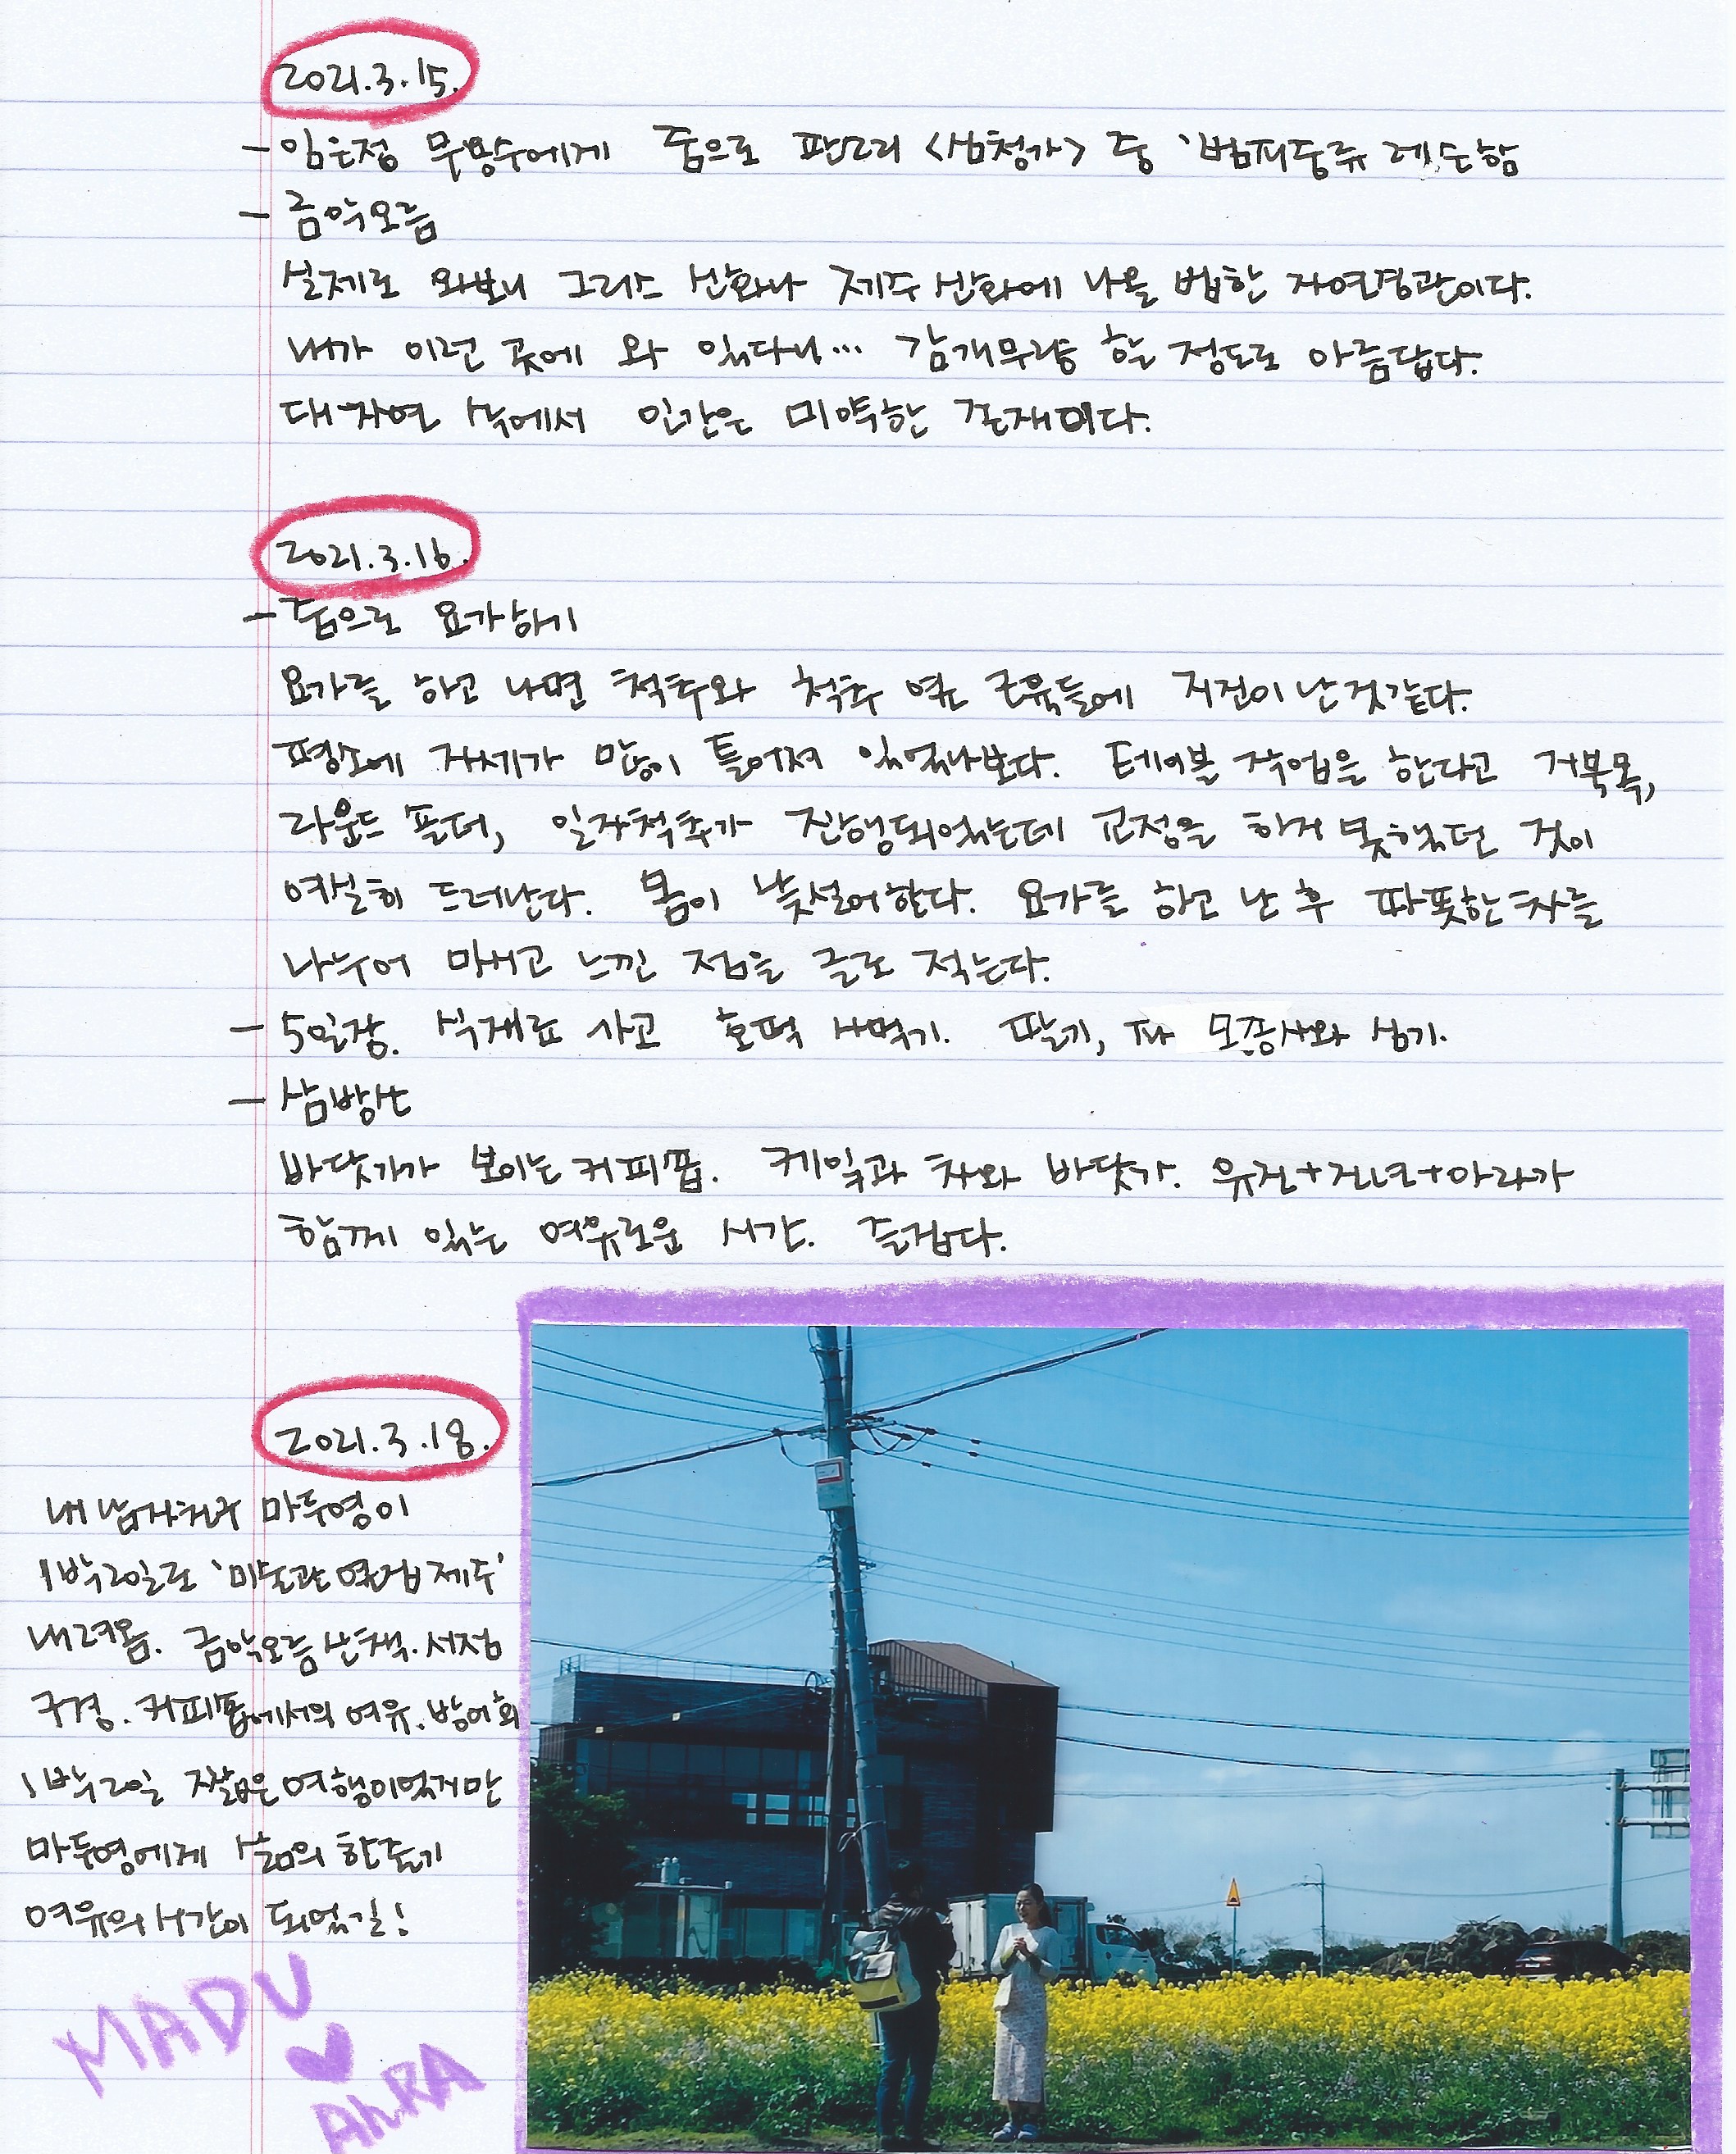 2021.3.15.
- 임은정 무용수에게 줌으로 판소리 <심청가> 중 '범피중류 레슨함
- 금악오름
실제로 와보니 그리스 신화나 제주 신화에 나올 법한 자연경관이다.
내가 이런 곳에 와 있다니... 감개무량 할 정도로 아름답다.
대자연 속에서 인간은 미약한 존재이다.
2021.3.16.
- 줌으로 요가하기
요가를 하고 나면 척추와 척추 옆 근육들에 지진이 난것같다.
평소에 자세가 많이 틀어져 있었나보다. 테이블 작업을 한다고 거북목,
라운드 숄더, 일자척추가 진행되었는데 교정을 하지 못했던 것이
여실히 드러난다. 몸이 낯설어한다. 요가를 하고 난 후 따뜻한 차를
나누어 마시고 느낀 점을 글로 적는다.
- 5일장. 식재료 사고 호떡 사먹기. 딸기, 파 모종사와 심기.
- 삼방산
바닷가가 보이는 커피숍. 케잌과 차와 바닷가. 유진+진년+아라가
함께 있는 여유로운 시간. 즐겁다.
2021.3.18.
내 남자친구 마두영이
1박2일로 '미술관옆집 제주'
내려옴. 금악오름 산책. 서점
구경. 커피숍에서의 여유. 방어회
1박2일 짧은 여행이었지만
마두영에게 삶의 한줄기
여유의 시간이 되었길!
MADU
AhRA